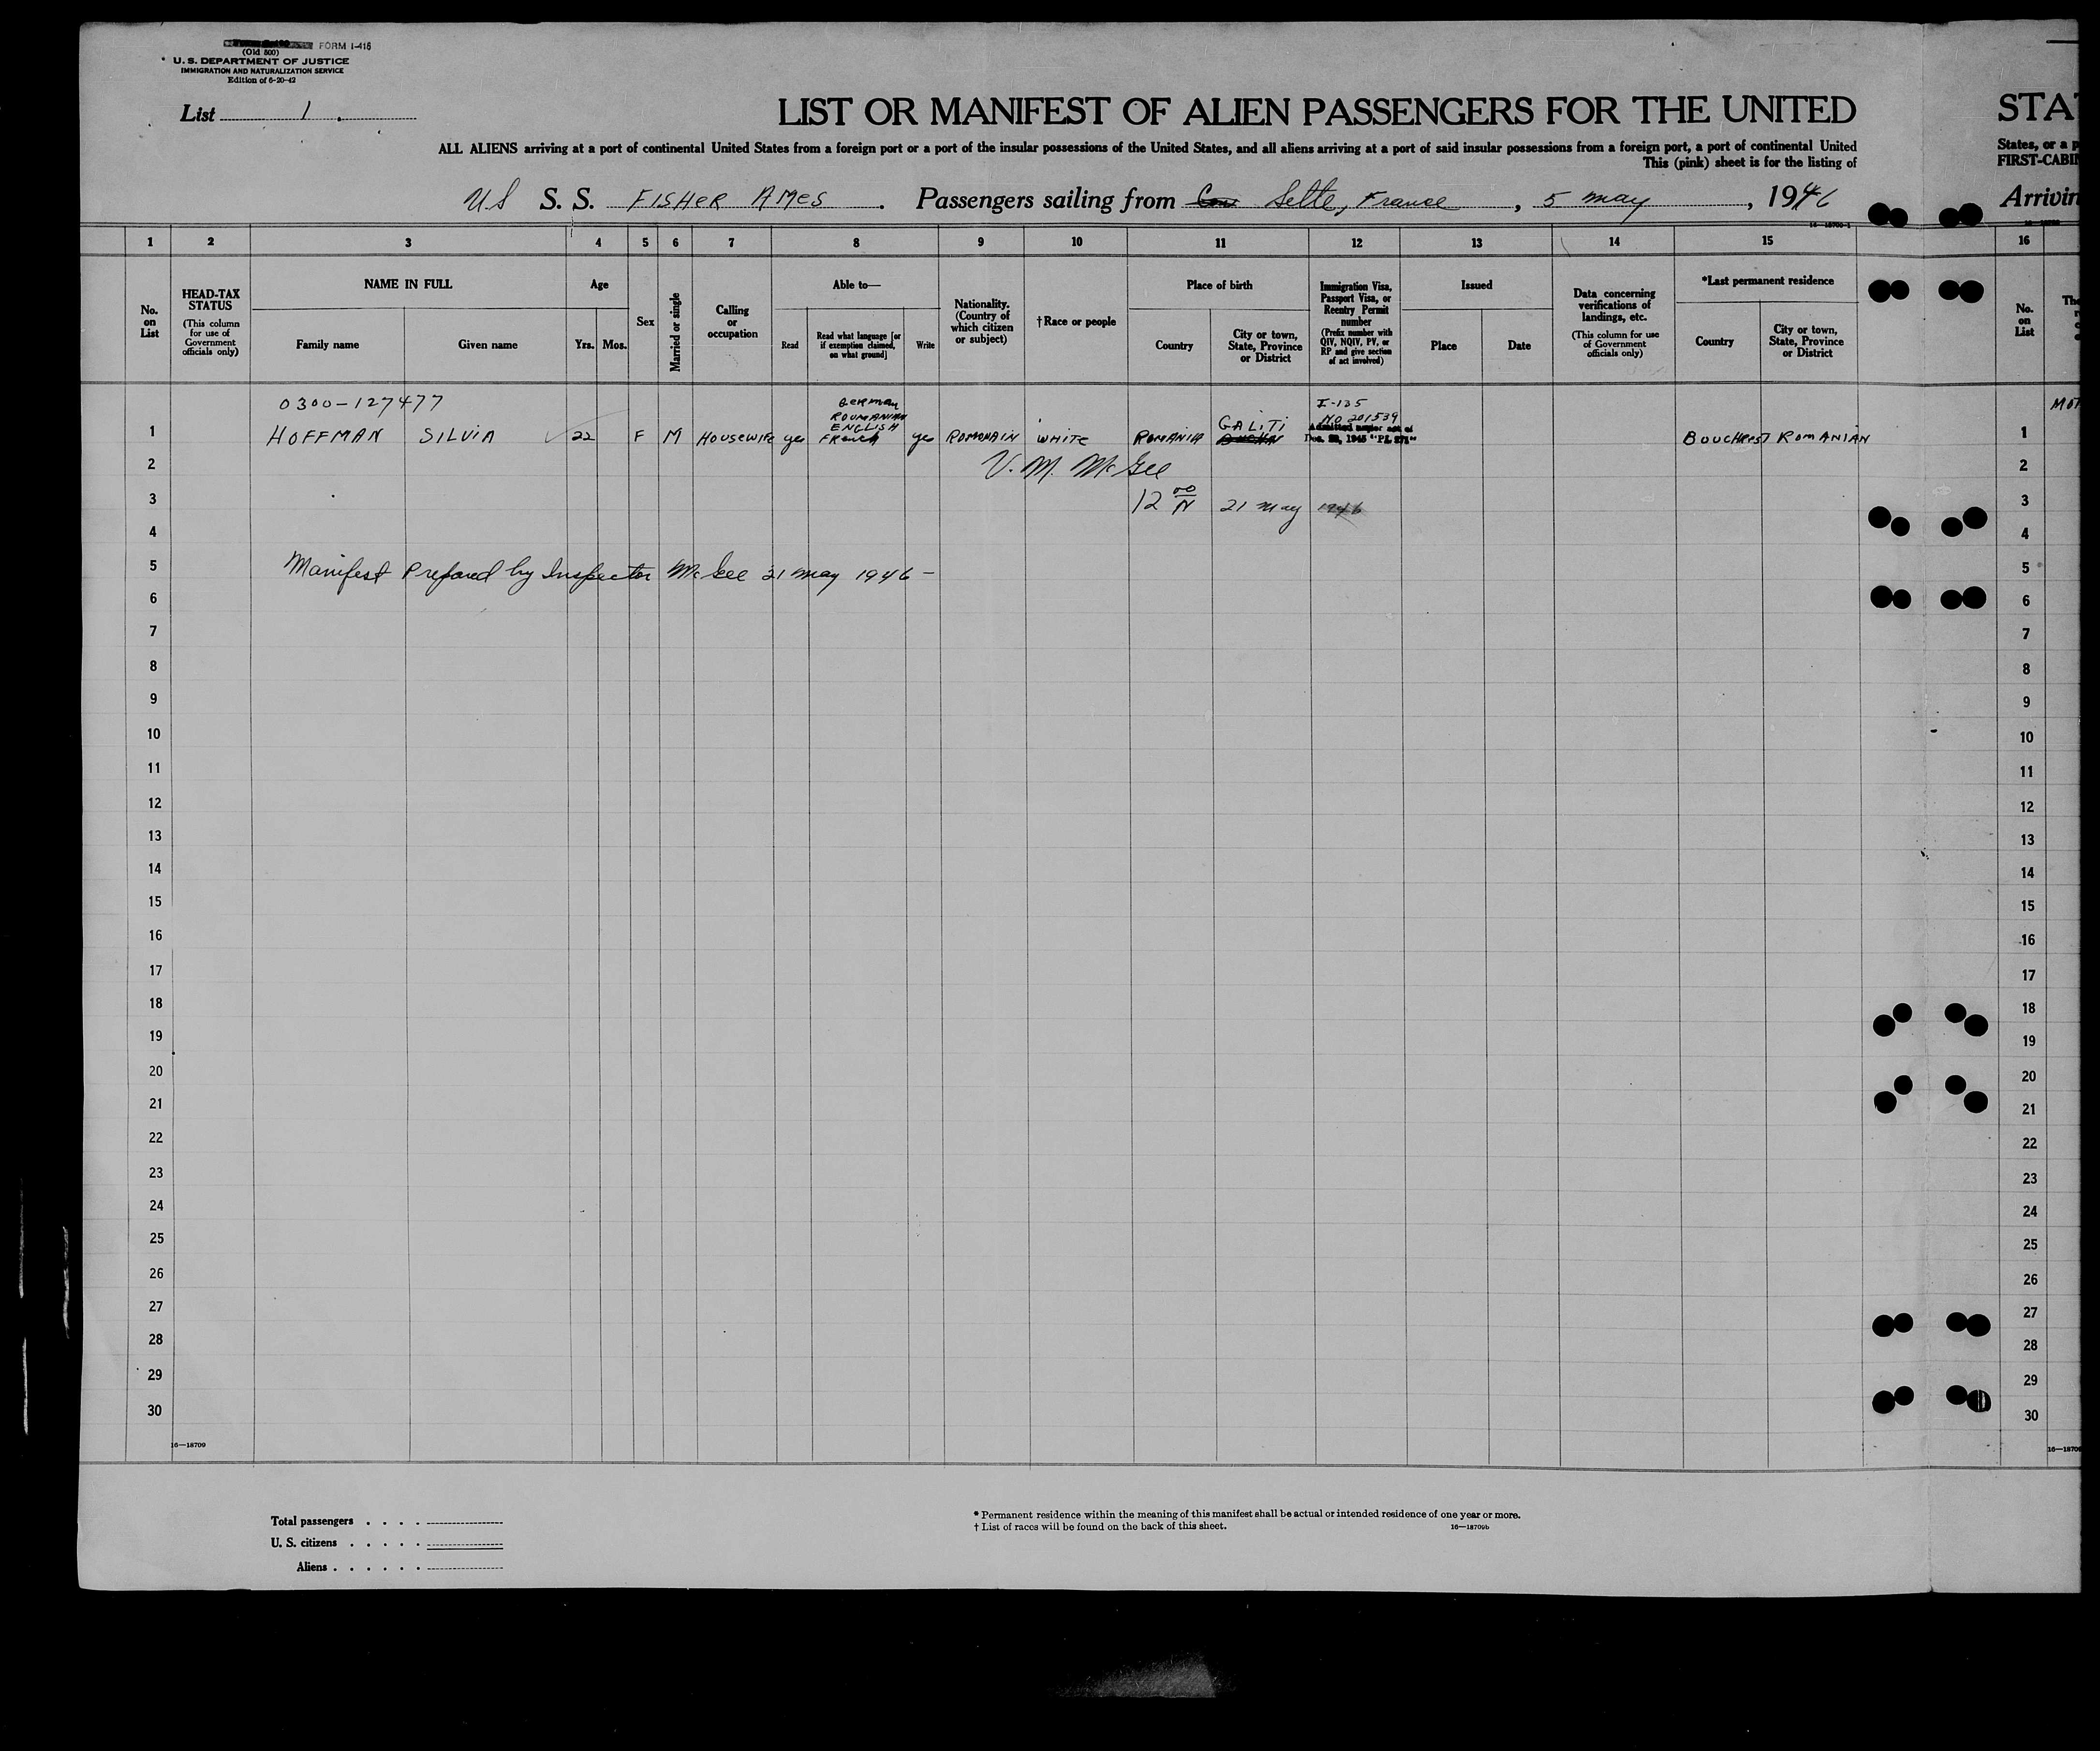 FORM I-415
(Old 500)
U. S. DEPARTMENT OF JUSTICE
IMMIGRATION AND NATURALIZATION SERVICE
Edition of 6-20-42
List 1.
LIST OR MANIFEST OF ALIEN PASSENGERS FOR THE UNITED
STA
ALL ALIENS arriving at a port of continental United States from a foreign port or a port of the insular possessions of the United States, and all aliens arriving at a port of said insular possessions from a foreign port, a port of continental United
States, or a p
This (pink) sheet is for the listing of
FIRST-CABI
US S. S. FISHER AMES. Passengers sailing from Sette, France, 5 May, 1946
Arrivin
1 2 3 4 5 6 7 8 9 10 11 12 13 14 15 16
No. on List
HEAD-TAX STATUS
(This column for use of Government officials only)
NAME IN FULL
Family name
Given name
Age
Yrs.
Mos.
Sex
Married or single
Calling or occupation
Able to—
Read
Read what language [or if exemption claimed, on what ground]
Write
Nationality. (Country of which citizen or subject)
†Race or people
Place of birth
Country
City or town, State, Province or District
Immigration Visa, Passport Visa, or Reentry Permit number
(Prefix number with QIV, NQIV, PV, or RP and give section of act involved)
Issued
Place
Date
Data concerning verifications of landings, etc.
(This column for use of Government officials only)
*Last permanent residence
Country
City or town, State, Province or District
No. on List
0300-127477
German
ROUMANIAN
ENGLISH
French
GALITI
I-135
No 201539
Admitted under act of
Dec. 28, 1945 "PL 271"
1 HOFFMAN SILVIA 22 F M Housewife yes yes ROMONAIN WHITE ROMANIA BOUCHREST ROMANIAN 1
2 V. M. McGee 2
3 12 00 N 21 May 1946 3
4 4
5 Manifest Prepared by Inspector McGee 21 May 1946 – 5
6 6
7 7
8 8
9 9
10 10
11 11
12 12
13 13
14 14
15 15
16 16
17 17
18 18
19 19
20 20
21 21
22 22
23 23
24 24
25 25
26 26
27 27
28 28
29 29
30 30
16—18709
16—1870
Total passengers
U. S. citizens
Aliens
* Permanent residence within the meaning of this manifest shall be actual or intended residence of one year or more.
† List of races will be found on the back of this sheet.
16—18709b